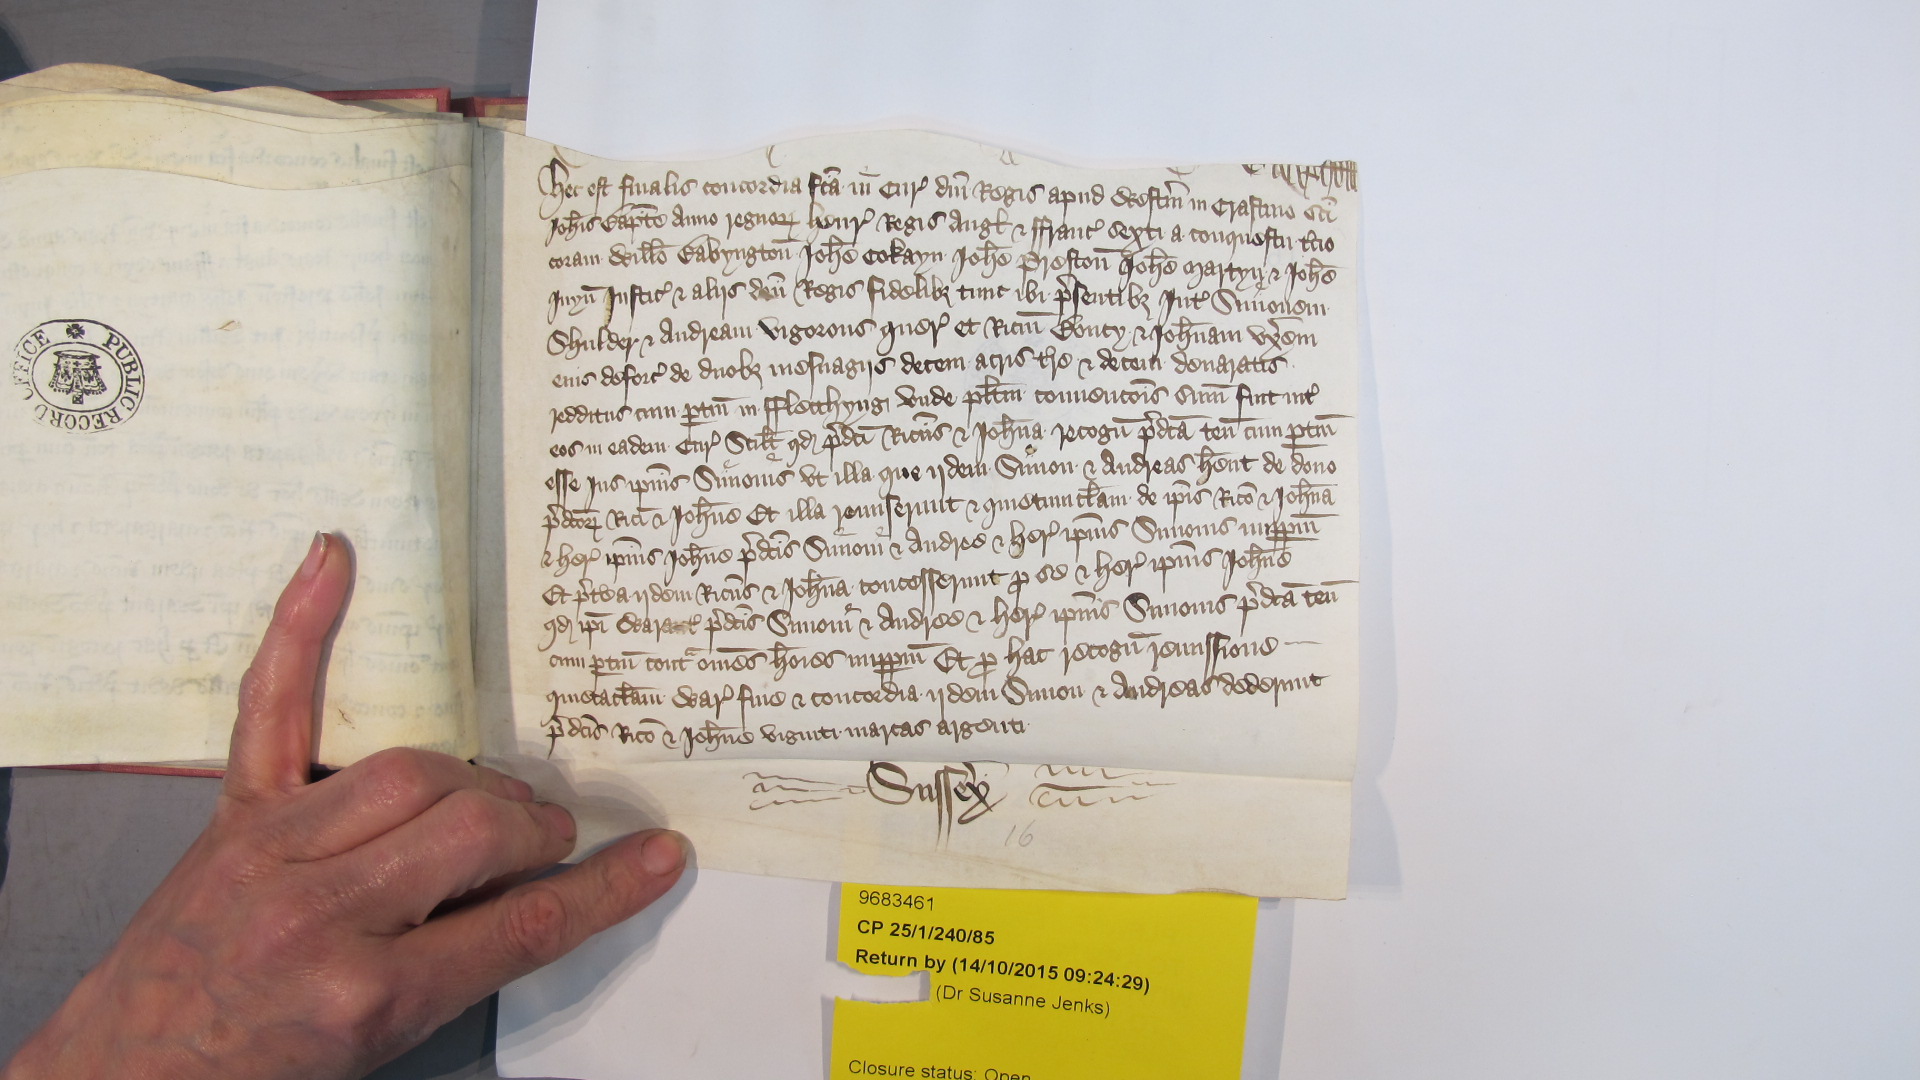 PUBLIC RECORD OFFICE
Hec est finalis concordia fcã in Cur' dñi Regis apud Westm̃ in Crastino sc̃i
Joh̃is Bapt̃e Anno regnoꝝ Henr' Regis Angl' & Franc' Sexti a conquestu t̃cio
coram Will̃o Babyngton̄ Joh̃e Cokayn Joh̃e Preston̄ Joh̃e Martyn & Joh̃e
Juyn̄ Justic' & alijs dñi Regis fidelibȝ tunc ibi p̃sentibȝ Int' Simonem
Shulder & Andream Vigorous quer' et Ric̃m & Joh̃nam vx̃em
eius deforc' de duobȝ mesuagijs decem acris t̃re & decem denaratis
redditus cum ptiñ in Fflecchyng vnde pl̃itm convenc̃ois sum̃ fuit int'
eos in eadem Cur' Scil̃t qd̃ p̃dc̃i Ric̃us & Joh̃na recogñ p̃dc̃a teñ cum ptiñ
esse jus ip̃ius Simonis vt illa que ijdem Simon & Andreas h̃ent de dono
p̃dc̃oꝝ Ric̃i & Joh̃ne Et illa remiserunt & quietumclam̃ de ip̃is Ric̃o & Joh̃na
& her' ip̃ius Joh̃ne p̃dc̃is Simoni & Andree & her' ip̃ius Simonis imppm̃
Et p̃t̃ea ijdem Ric̃us & Joh̃na concesserunt p se & her' ip̃ius Joh̃ne
qd̃ ip̃i Warant' p̃dc̃is Simoni & Andree & her' ip̃ius Simonis p̃dc̃a teñ
cum ptiñ cont̃ om̃es h̃oies imppm̃ Et p hac recogñ remissione
quietaclam̃ War' fine & concordia ijdem Simon & Andreas dederunt
p̃dc̃is Ric̃o & Joh̃ne viginti marcas argenti
Sussex̃
16
9683461
CP 25/1/240/85
Return by (14/10/2015 09:24:29)
(Dr Susanne Jenks)
Closure status: Open